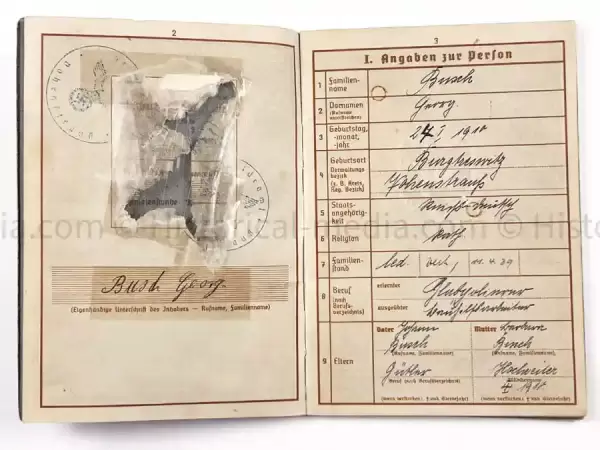 2
Busch Georg
(Eigenhändige Unterschrift des Inhabers — Rufname, Familienname)
3
I. Angaben zur Person
1 Familien-
name
Busch
2 Vornamen
(Rufname
unterstreichen)
Georg.
3 Geburtstag,
-monat,
-jahr
1910
4 Geburtsort
Verwaltungs-
bezirk
(z. B. Kreis,
Reg.-Bezirk)
Vohenstrauß
5 Staats-
angehörig-
keit
6 Religion
Kath
7 Familien-
stand
led. verh, 11.4.39
8 Beruf
(nach
Berufs-
verzeichnis)
erlernter
Glaspolierer
ausgeübter
9 Eltern
Vater Johann
Busch
(Rufname, Familienname)
Gütler
Beruf (nach Berufsverzeichnis)
(wenn verstorben: † und Sterbejahr)
Mutter Barbara
Busch
(Rufname, Familienname)
(Mädchenname)
1910
(wenn verstorben: † und Sterbejahr)
ia.com © Historical-media.com © Histo